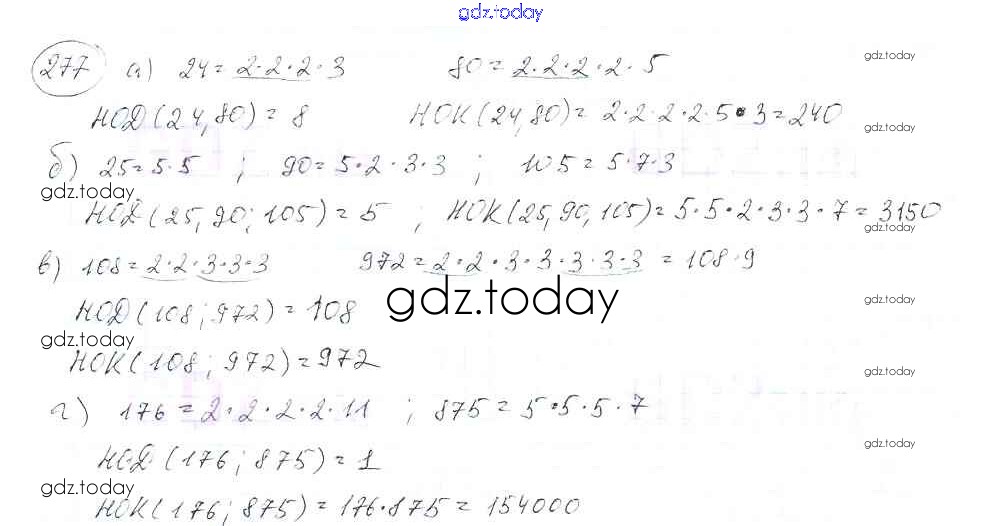 gdz.today
277 а) 24 = 2·2·2·3 80 = 2·2·2·2·5
gdz.today
НОД(24,80) = 8 НОК(24,80) = 2·2·2·2·5·3 = 240
gdz.today
б) 25 = 5·5 ; 90 = 5·2·3·3 ; 105 = 5·7·3
gdz.today
gdz.today
НОД(25, 90; 105) = 5 ; НОК(25, 90, 105) = 5·5·2·3·3·7 = 3150
gdz.today
в) 108 = 2·2·3·3·3 972 = 2·2·3·3·3·3·3 = 108·9
gdz.today
gdz.today
НОД(108; 972) = 108
gdz.today
gdz.today
НОК(108; 972) = 972
gdz.today
г) 176 = 2·2·2·2·11 ; 875 = 5·5·5·7
gdz.today
НОД(176; 875) = 1
gdz.today
НОК(176; 875) = 176·875 = 154000